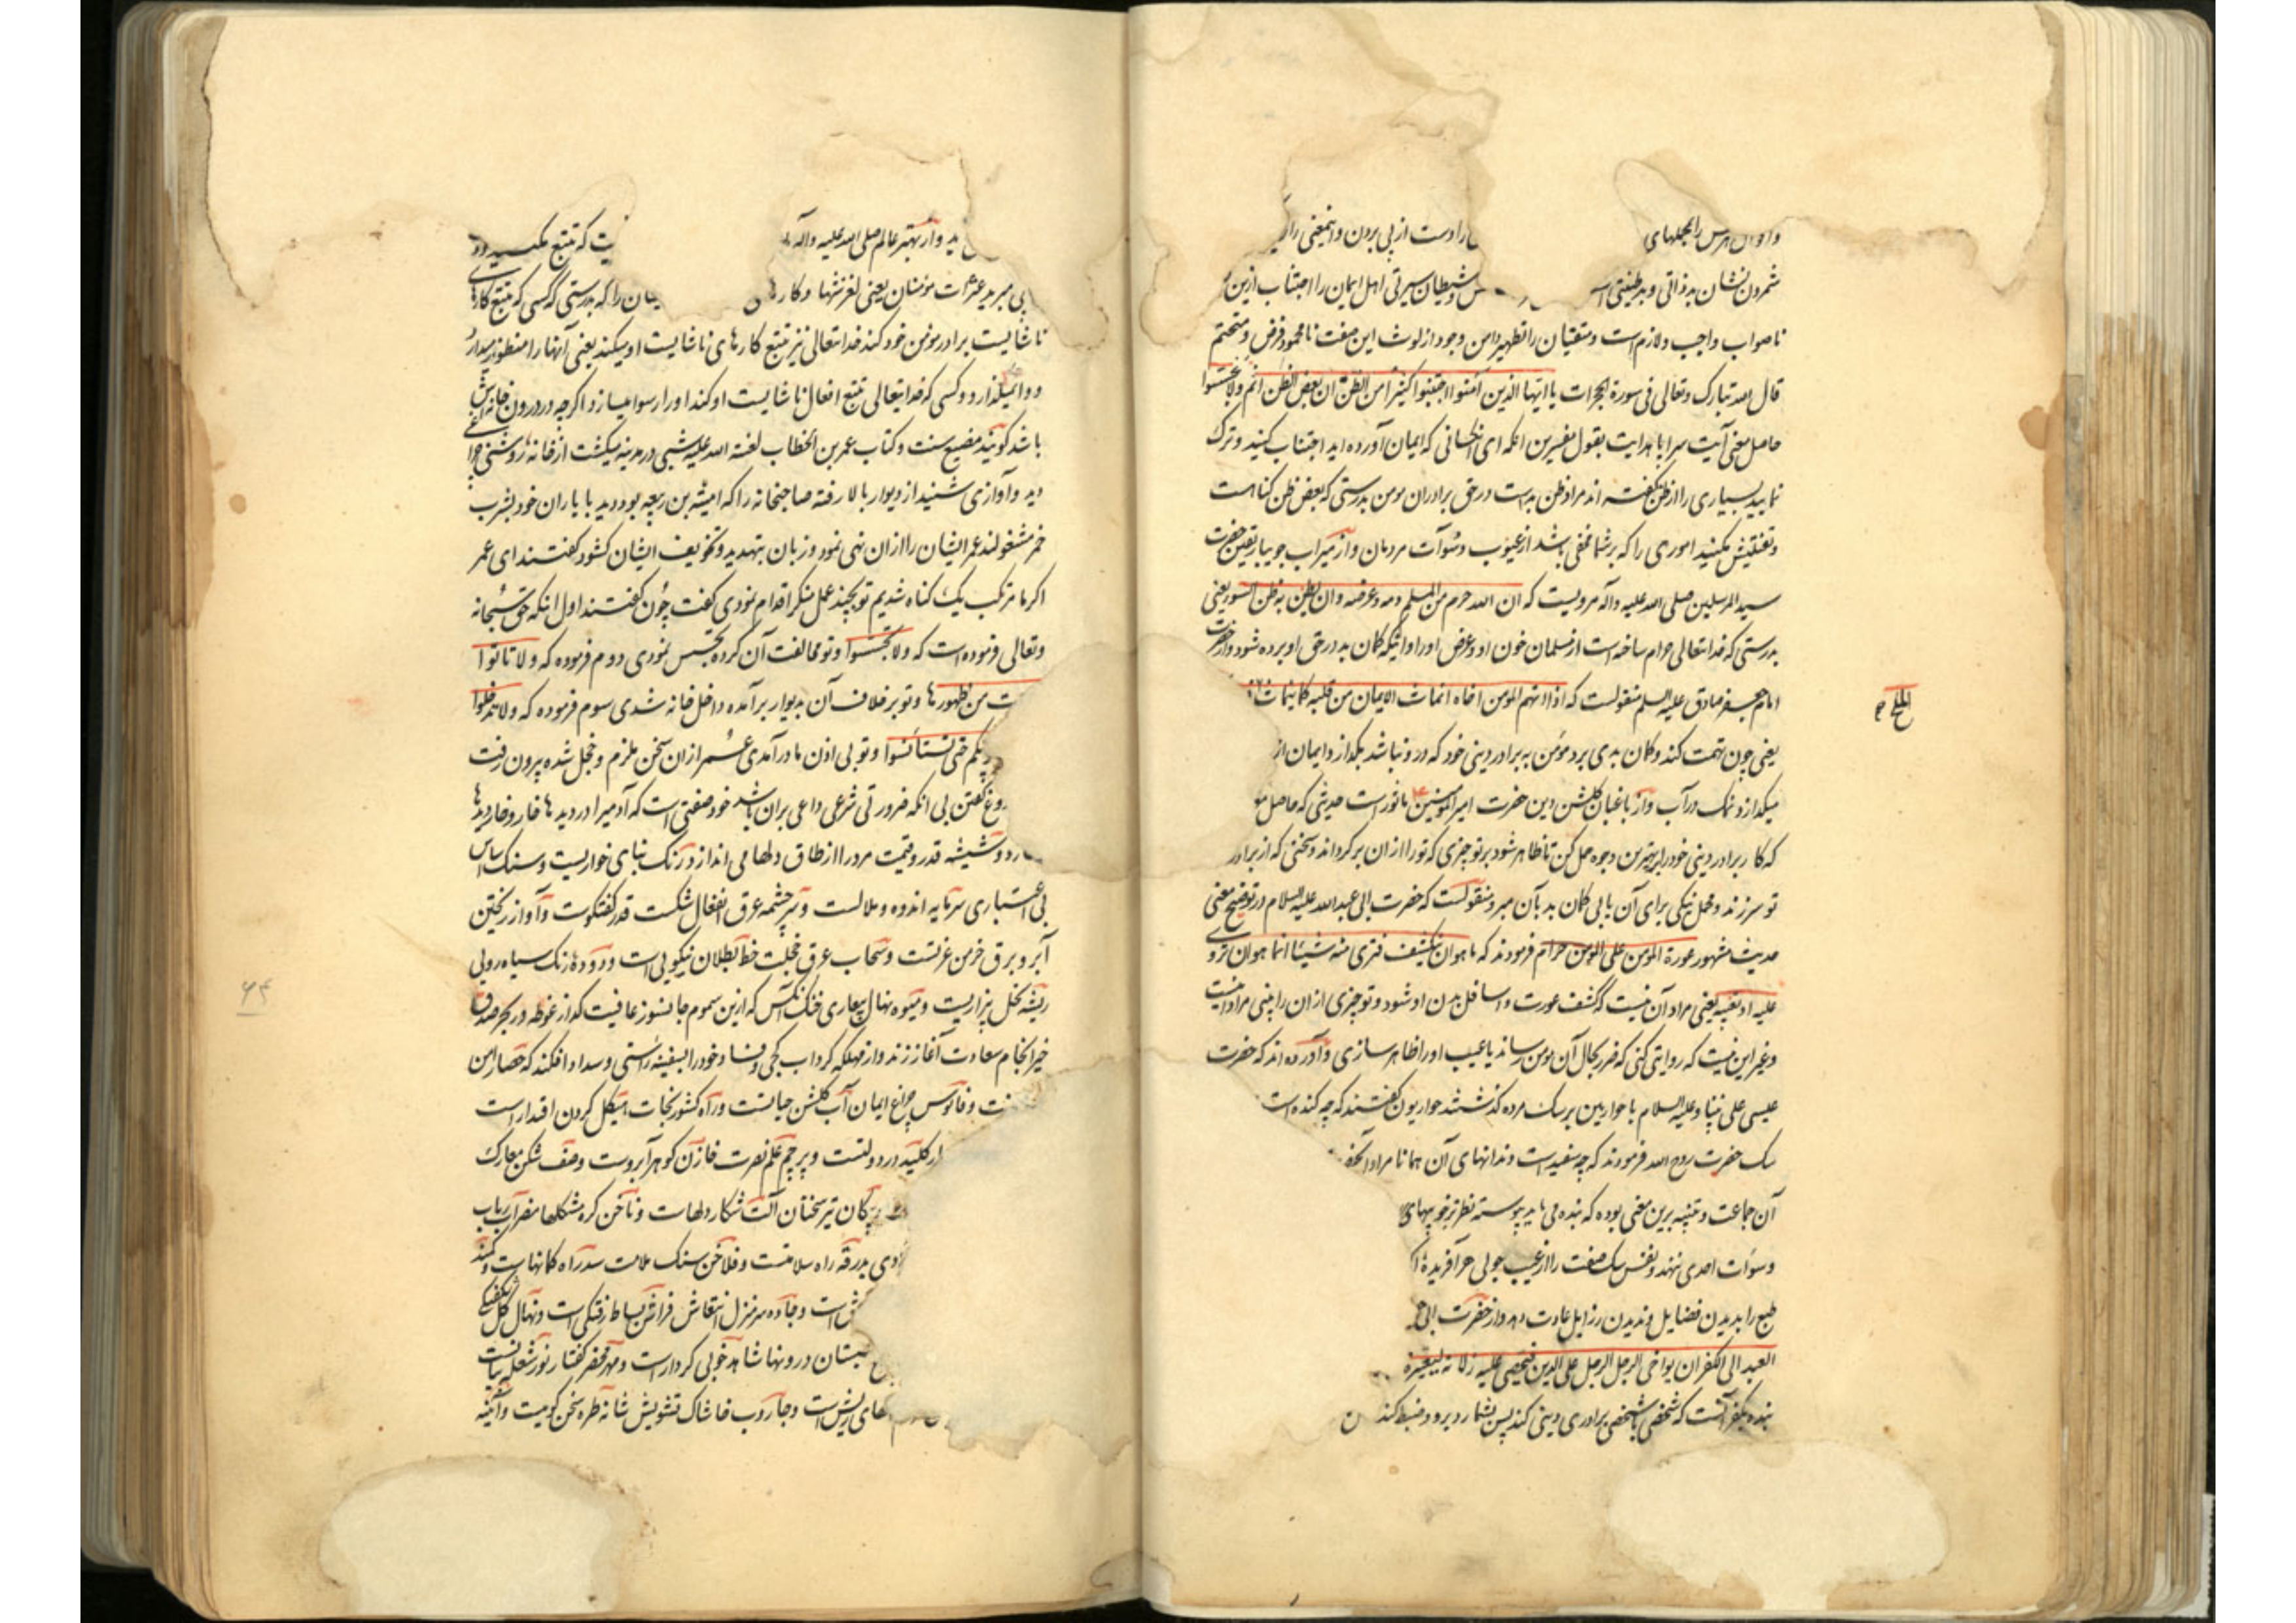 را دست از پی بردن و اینمعنی را
شمردن نشان بد ذاتی و بد طینتی و شیطان سیرتی اهل ایمان را اجتناب ازین
ناصواب واجب و لازم است و متقیان را تطهیر دامن وجود از لوث این صفت نامحمود فرض و متحتم
قال الله تبارک و تعالی فی سورة الحجرات یا ایها الذین آمنوا اجتنبوا کثیرا من الظن ان بعض الظن اثم ولا تجسسوا
حاصل معنی آیت سراپا هدایت بقول مفسرین انکه ای انکسانی که ایمان آورده اید اجتناب کنید و ترک
نمایید بسیاری را از ظن گفته اند مراد ظن بدست در حق برادران مومن بدرستی که بعض ظن کناهست
و تفتیش مکنید اموری را که بر شما مخفی باشد از عیوب و سوآت مردمان و از میراب جویبار یقین حضرت
سید المرسلین صلی الله علیه و آله مرویست که ان الله حرم من المسلم دمه و عرضه و ان یظن به ظن السوء یعنی
بدرستی که خدایتعالی حرام ساخته است از مسلمان خون او و عرض او را و اینکه کمان بد در حق او برده شود و از حضرت
امام جعفر صادق علیه السلم منقولست که اذا اتهم المومن اخاه انماث الایمان من قلبه کما ینماث
الملح
یعنی چون تهمت کند و کمان بدی برد مؤمن به برادر دینی خود که در و نباشد بکدازد ایمان از
میکدازد نمک در آب و از باغبان کلشن دین حضرت امیر المومنین ماثور است حدیثی که حاصل
که کار برادر دینی خود را بر بهترین وجوه حمل کن تا ظاهر شود بر تو چیزی که تو را از ان بر کرداند و سخنی که از برادر
تو سرزند و محمل نیکی برای آن یابی کمان بد بآن مبر و منقولست که حضرت ابی عبد الله علیه السلام در توضیح معنی
حدیث مشهور عورة المومن علی المومن حرام فرمودند که ما هو ان ینکشف فتری منه شیئا انما هو ان تروی
علیه او تعیبه یعنی مراد آن نیست که کشف عورت و اسافل بدن او شود و تو چیزی از ان را بینی مراد اینست
و غیر این نیست که روایتی کنی که ضرر بحال آن مومن رساند یا عیب او را ظاهر سازی و آورده اند که حضرت
عیسی علی نبینا و علیه السلام با حواریین بر سک مرده کذشتند حواریون کفتند که چه کنده است
سک حضرت روح الله فرمودند که چه سفید است دندانهای آن همانا مراد انحضرت
آن جماعت و تنبیه برین معنی بوده که بنده می باید پیوسته نظر بر خوبیهای
و سوآت احدی ننهد و نفس سک صفت را از عیب جویی هر آفریده
طبع را بدیدن فضایل و ندیدن رذایل عادت دهد و از حضرت ابی
العبد الی الکفر ان یواخی الرجل الرجل علی الدین فیحصی علیه زلاته لیعیره
بنده بکفر آنست که شخصی با شخصی برادری دینی کند پس بشمارد برو و ضبط کند
ید و از بهتر عالم صلی الله علیه و آله یت که تتبع مکنید
عثرات مؤمنان یعنی لغزشها و کار را که بدرستی که کسی که تتبع کارهای
ناشایست برادر مؤمن خود کند خدایتعالی نیز تتبع کارهای ناشایست او میکند یعنی آنها را منظور میدارد
و وانمیکذارد و کسی که خدایتعالی تتبع افعال ناشایست او کند او را رسوا میسازد اکرچه در درون خانه اش
باشد کویند مضیع سنت و کتاب عمر بن الخطاب لعنه الله علیه شبی در مدینه میکشت از خانه روشنی چراغی
دید و آوازی شنید از دیوار بالا رفته صاحبخانه را که امیة بن ربیعه بود دید با یاران خود بشرب
خمر مشغولند عمر ایشان را از ان نهی نمود و زبان بتهدید و تخویف ایشان کشود کفتند ای عمر
اکر ما مرتکب یک کناه شدیم تو بچند عمل منکر اقدام نمودی کفت چون کفتند اول انکه حق سبحانه
و تعالی فرموده است که ولا تجسسوا و تو مخالفت آن کرده تجسس نمودی دوم فرموده که ولا تاتوا
من ظهورها و تو بر خلاف آن بدیوار بر آمده داخل خانه شدی سوم فرموده که ولا تدخلوا
حتی تستانسوا و تو بی اذن ما درآمدی عمر از ان سخن ملزم و خجل شده بیرون رفت
کفتن بی انکه ضرورتی شرعی داعی بران باشد خود صفتی است که آدمی را در دیدها خار و خار دیدها
و شیشه قدر و قیمت مرد را از طاق دلها می اندازد رنک بنای خواریست و سنک اساس
بی اعتباری سرمایه اندوه و ملالست و سرچشمه عرق انفعال شکست قدر کفتکوست و آواز ریختن
آبرو برق خرمن عزتست و سحاب عرق خجلت خط بطلان نیکویی است و دوده رنک سیاه رویی
ریشه نخل بیزاریست و میوه نهال بیعاری خنک آنکس که ازین سموم جانسوز عافیت کداز غوطه در بحر صدق
خیر انجام سعادت آغاز زند و از مهلکه کرداب کجی و فساد خود را بسفینه راستی و سداد افکند که حصار امن
و فانوس چراغ ایمان آب کلشن حیاتست و راه کشور نجات هیکل کردن اقتدار است
کلید در دولتست و پرچم علم نصرت خازن کوهر آبروست و صف شکن معارک
پیکان تیر سخنان آلت شکار دلهاست و ناخن کره مشکلها مضراب رباب
بدرقه راه سلامتست و فلاخن سنک ملامت سد راه کمانهاست و کمند
است و جاده سر منزل انتعاش فراش بساط زفتکی است و نهال کل شکفتکی
درونها شاهد خوبی کردارست و مهر محضر کفتار نور شعله بیانست
ریش است و جاروب خاشاک تشویش شانه طره سخن کوییست و آئینه
۶۴